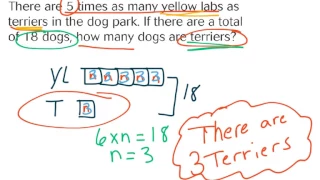 There are 5 times as many yellow labs as
terriers in the dog park. If there are a total
of 18 dogs, how many dogs are terriers?
YL
18
T
6 x n = 18
n = 3
There are
3 Terriers